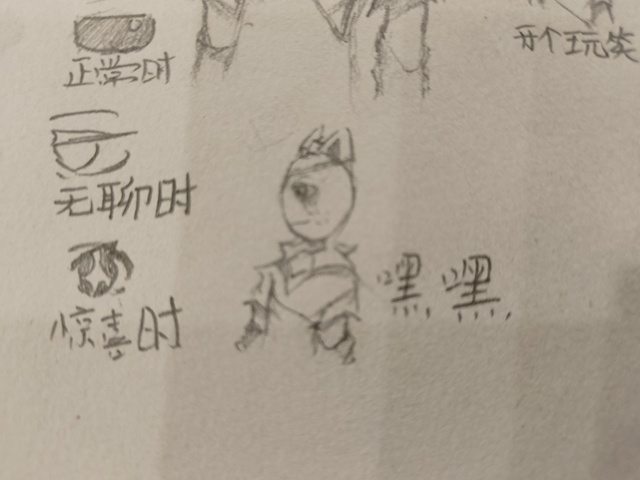 正常时
开个玩笑
无聊时
惊喜时
嘿嘿,